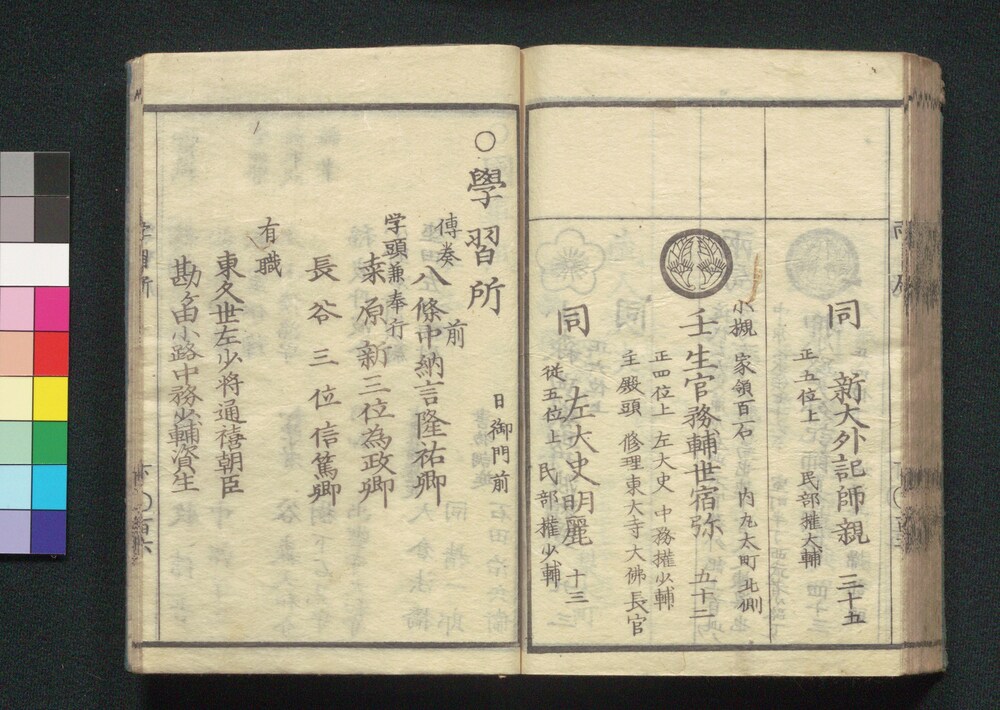 同
新大外記師親 三十五
正五位上 民部権大輔
小槻 家領百石 内丸太町北側
壬生官務輔世宿弥 五十二
正四位上 左大史 中務権少輔
主殿頭 修理東大寺大佛長官
同
左大史明麗 十三
従五位上 民部権少輔
○學習所
日御門前
傳奏
八條前中納言隆祐卿
学頭兼奉行
桒原新三位為政卿
長谷三位信篤卿
有職
東久世左少将通禧朝臣
勘ヶ由小路中務少輔資生